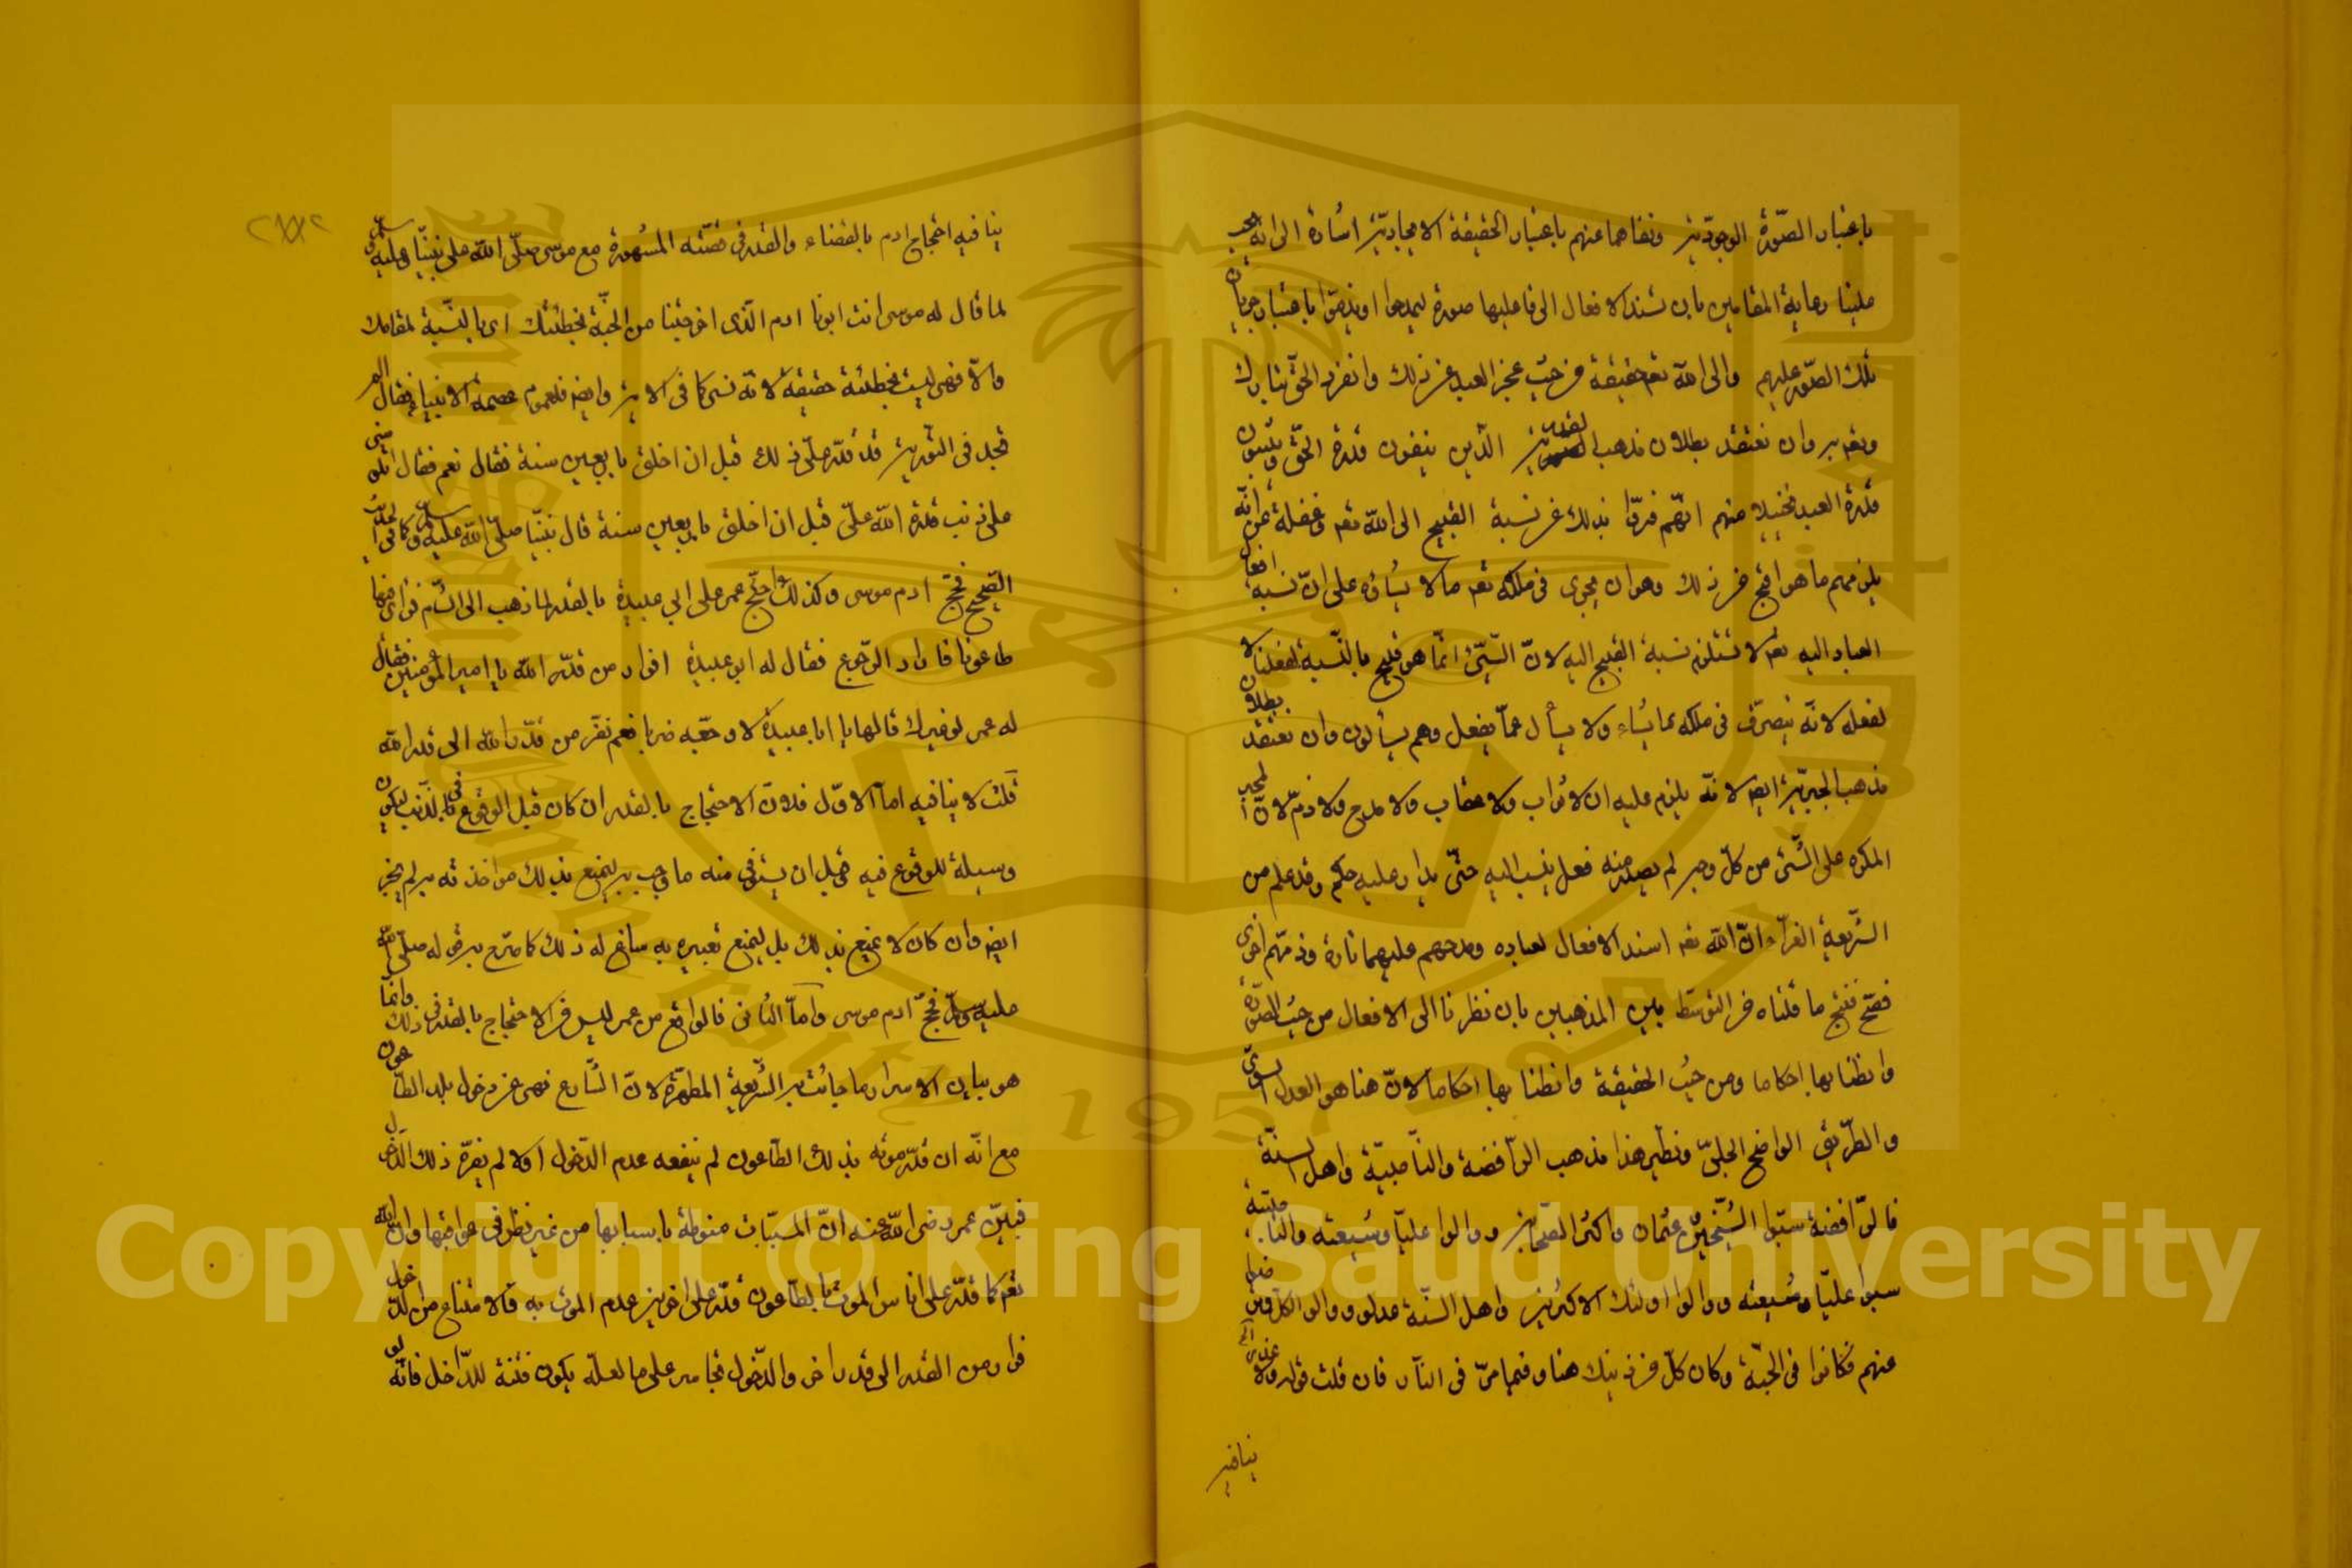 باعتبار الصّورة الوجوديّة ونفاهما عنهم باعتبار الحقيقة الايجاديّة اشارة الى انه يجب
علينا رعاية المقامين بان نسند الافعال الى فاعليها صورة ليمدحوا او يذمّوا باعتبار جريان
تلك الصّور عليهم والى الله تعه حقيقة من حيث عجز العبد عن ذلك وانفراد الحقّ بتبارك
وبعد به وان نعتقد بطلان مذهب القدرية الّذين ينفون قدرة الحقّ ويثبتون
قدرة العبد تخيلا منهم انّهم فرّوا بذلك عن نسبة القبيح الى الله تعه وغفلة عن انّه
يلزمهم ما هو اقبح من ذلك وهو ان يجرى فى ملكه تعه ما لا يشاؤه على انّ نسبة افعال
العباد اليه تعه لا تستلزم نسبة القبيح اليه لانّ الشّىء انّما هو قبيح بالنّسبة لفعلنا لا
لفعله لانّه يتصرّف فى ملكه بما يشاء ولا يسأل عمّا يفعل وهم يسألون وان نعتقد بطلان
مذهب الجبريّة ايضا لانّه يلزم عليه ان لا ثواب ولا عقاب ولا مدح ولا ذمّ لانّ المجبر
المكره على الشّىء من كلّ وجه لم يصدر منه فعل ينسب اليه حتّى يدار عليه حكم وقد علم من
الشّريعة الغرّاء انّ الله تعه اسند الافعال لعباده ومدحهم عليهما تارة وذمّهم اخرى
فصّح فنتج ما قلناه من التوسّط بين المذهبين بان نظرنا الى الافعال من حيث الصّورة
وانطنا بها احكاما ومن حيث الحقيقة وانطنا بها احكاما لانّ هذا هو العدل السوىّ
والطّريق الواضح الجلىّ ونظير هذا مذهب الرّافضة والنّاصبيّة واهل السنّة
فالرّافضة سبّوا الشّيخين وعثمان واكثر الصّحابة ووالوا عليّا وشيعته والناصبيّة
سبوا عليّا وشيعته ووالوا اولئك الاكثرين واهل السنّة عدلوا ووالوا الكلّ
منهم فكانوا فى الجنّة وكان كلّ من ذينك هنا وفيما مرّ فى النّار فان قلت قوله ولا
ينافيه
ينافيه احتجاج ادم بالقضاء والقدر فى قصّته المشهورة مع موسى صلّى الله على نبيّنا وعليه وسلّم
لما قال له موسى انت ابونا ادم الّذى اخرجتنا من الجنّة بخطيئتك اى بالنّسبة لمقامك
والّا فهى ليست بخطيئة حقيقة لانّه نسى كما فى الاية وايضا فلعموم عصمة الانبياء فقال الم
تجد فى التّورية قد قدّر علىّ ذلك قبل ان اخلق باربعين سنة فقال نعم فقال تلومنى
على ذنب قدّره الله علىّ قبل ان اخلق باربعين سنة قال نبيّنا صلّى الله عليه وسلّم كما فى الحديث
الصّحيح فحجّ ادم موسى وكذلك احتجّ عمر على ابى عبيدة بالقدر لما ذهب الى الشّام فراى فيها
طاعونا فاراد الرّجوع فقال له ابو عبيدة افرار من قدر الله يا امير المؤمنين فقال
له عمر لو غيرك قالها يا ابا عبيدة لاوجعته ضربا نعم نفرّ من قدر الله الى قدر الله
قلت لا ينافيه امّا الاوّل فلانّ الاحتجاج بالقدر ان كان قبل الوقوع فى الذّنب ليكون
وسيلة للوقوع فيه او قبل ان يستوفى منه ما وجب به ليمنع بذلك من اخذ به لم يجز
ايضا وان كان لا ليمنع بذلك بل ليمنع تعييره به ساغ له ذلك كما صرّح به قوله صلّى الله
عليه وسلّم فحجّ ادم موسى وامّا الثّانى فالواقع من عمر ليس من الاحتجاج بالقدر فى ذلك وانّما
هو بيان الاسرار ما جائت به الشّريعة المطهّرة لانّ الشّارع نهى عن دخول بلد الطّاعون
مع انّه ان قدّر موته بذلك الطّاعون لم ينفعه عدم الدّخول اولا لم يضرّه ذلك الدّخول
فبيّن عمر رضى الله عنه انّ المسبّبات منوطة باسبابها من غير نظر فى عواقبها وانّ الله
تعه كما قدّر على اناس الموت بالطّاعون قدّر على اخرين عدم الموت به والامتناع من الدّخول
فرار من القدر الى قدر اخر والدّخول تجاسر على ما لعلّه يكون فتنة للدّاخل فانّه لو